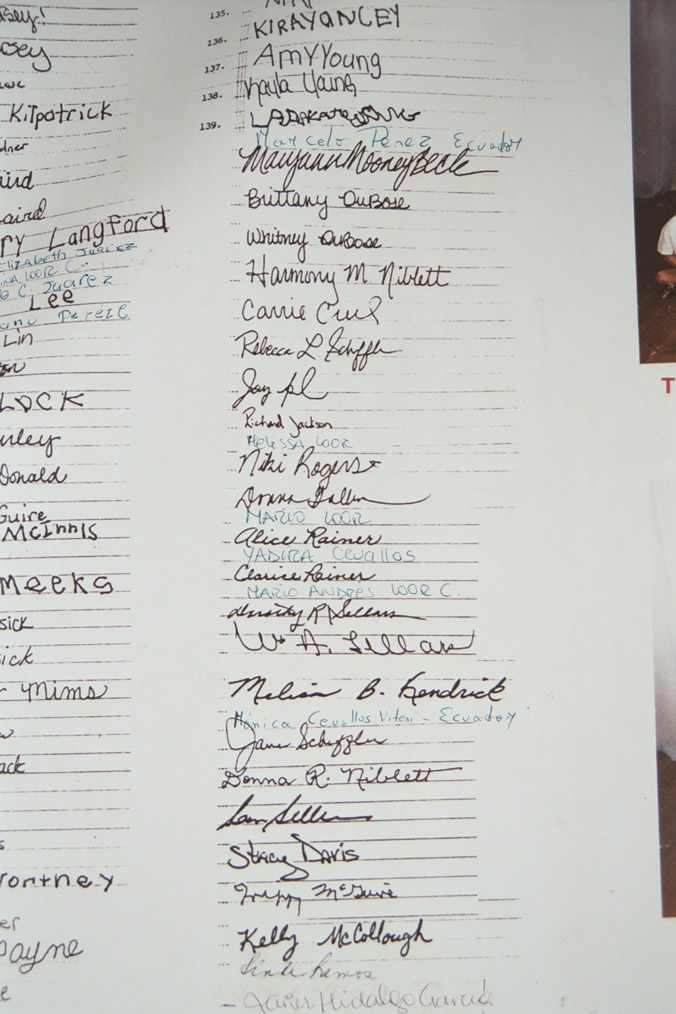 Kilpatrick
aird
aird
ry Langford
Elizabeth Juarez
LOOR C.
C Juarez
Lee
Perez
Lin
LOCK
urley
Donald
Guire
McInnis
Meeks
sick
sick
Mims
ack
Fortney
Payne
135.
136. KIRAYANCEY
137. Amy Young
138. Kayla Young
139.
Marcelo Perez Ecuador
Maryann Mooney Beck
Brittany DuBose
Whitney DuBose
Harmony M. Niblett
Carrie Crul
Rebecca L Schiffler
Jay
Richard Jackson
Melissa LOOR
Niki Rogers
Donna
MARIO LOOR
Alice Rainer
YADIRA Cevallos
Clarice Rainer
MARIO ANDRES LOOR C.
Dorothy R. Sellars
Wm A. Sellars
Melissa B. Kendrick
Mónica Cevallos Viteri - Ecuador
Jane Schiffler
Donna R. Niblett
Sam Sellers
Stacy Davis
Trippy McGuire
Kelly McCollough
Linda Ramos
- Javier Hidalgo Garcia
T